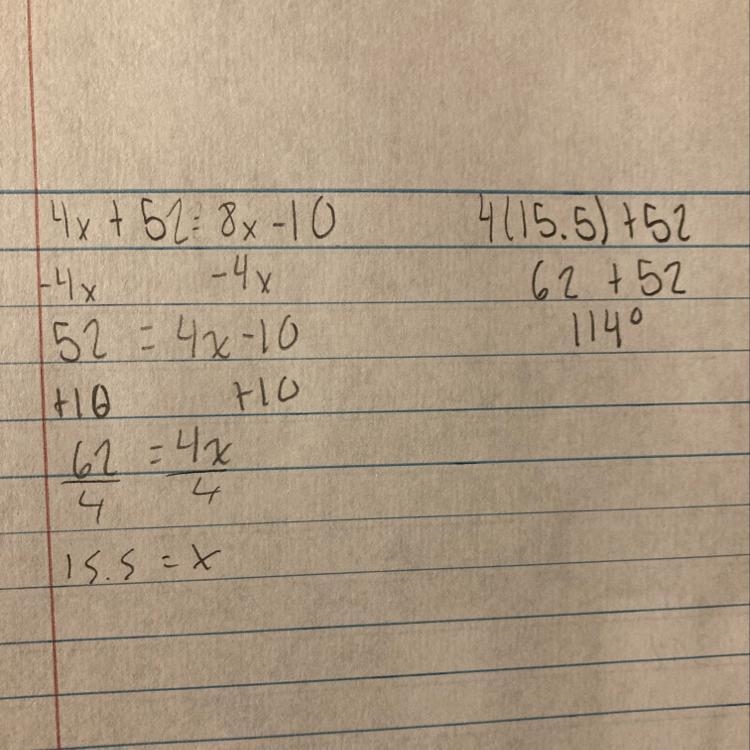 4x + 52 = 8x - 10
-4x -4x
52 = 4x - 10
+10 +10
62 = 4x
4 4
15.5 = x
4(15.5) + 52
62 + 52
114°